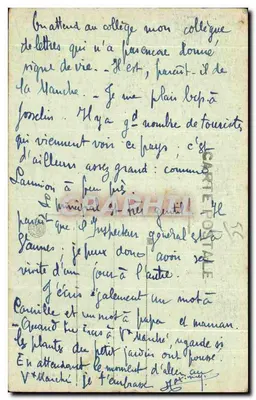 On attend au collège mon collègue
de lettres qui n'a pas encore donné
signe de vie. - Il est, paraît-il de
la Manche. - Je me plais bcp à
Josselin. Il y a gd nombre de touristes
qui viennent voir ce pays; c'est
d'ailleurs assez grand: comme
Lannion à peu près.
très gentil. Il
paraît que l'Inspecteur général est à
Vannes: je peux donc avoir sa
visite d'un jour à l'autre.
J'écris également un mot à
Camille et un mot à papa et maman.
- Quand tu iras à Vx Marché, regarde si
les plants du petit jardin ont poussé.
En attendant le moment d'aller au
Vx Marché je t'embrasse
CARTE POSTALE